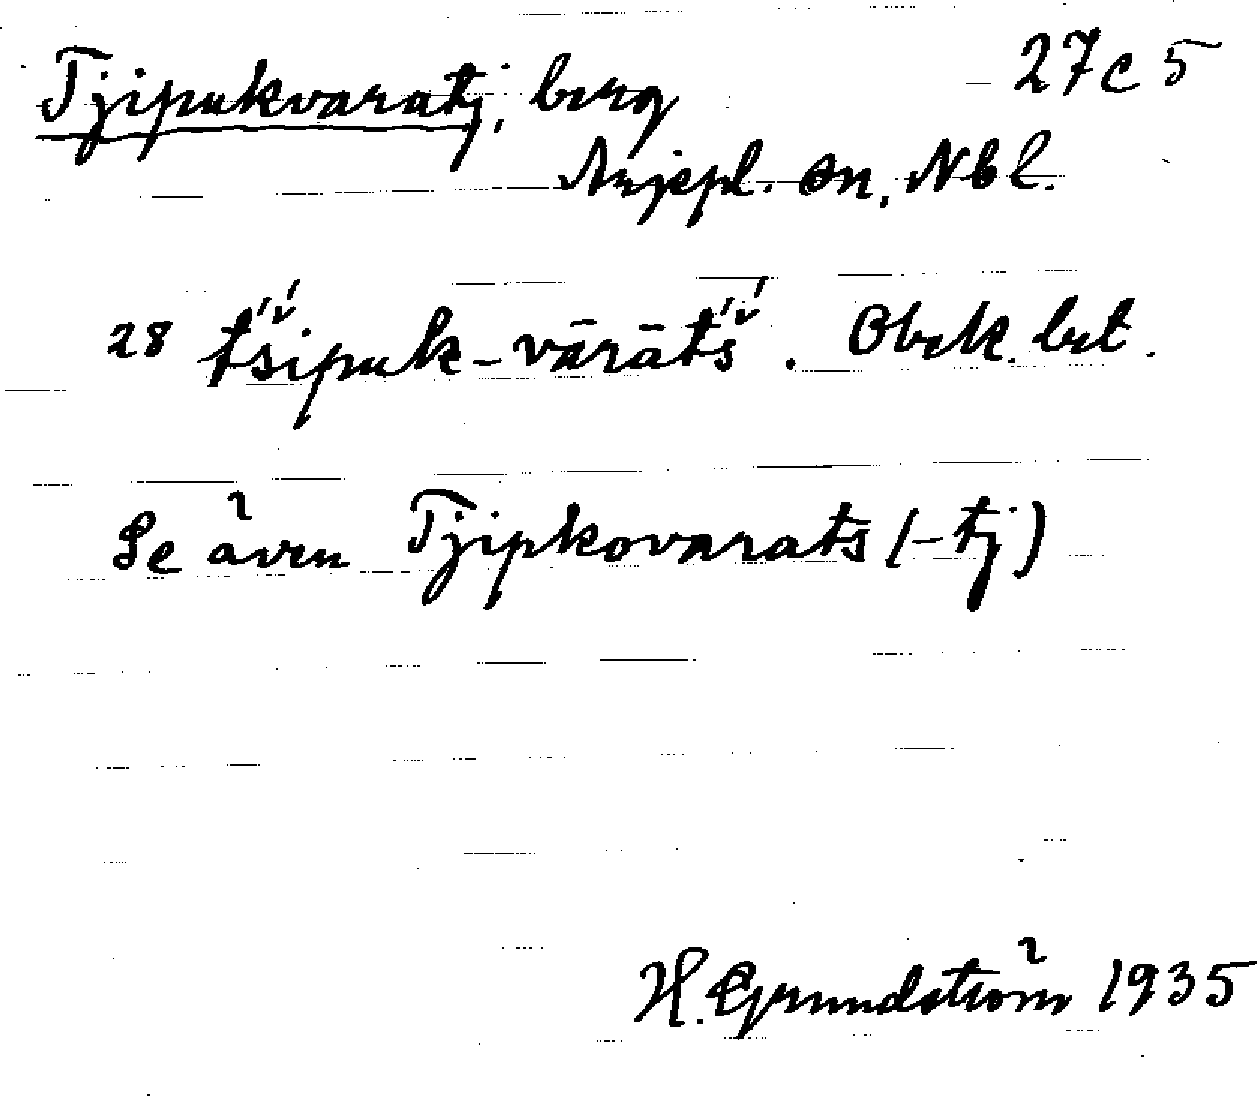 Tjipukvaratj, berg 27c5
Arjepl. sn, Nbl.
28 t́š́ipuk-vārāt́š́. Obek. bet.
Se även Tjipkovarats (-tj)
H. Grundström 1935